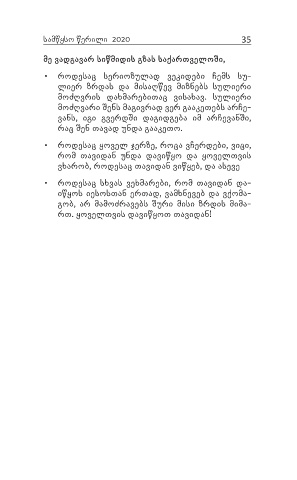 სამწყსო წერილი 2020 35
მე ვადგავარ სიწმიდის გზას საქართველოში,
• როდესაც სერიოზულად ვეკიდები ჩემს სუ-
ლიერ ზრდას და მისაღწევ მიზნებს სულიერი
მოძღვრის დახმარებითაც ვისახავ. სულიერი
მოძღვარი შენს მაგივრად ვერ გააკეთებს არჩე-
ვანს, იგი გვერდში დაგიდგება იმ არჩევანში,
რაც შენ თავად უნდა გააკეთო.
• როდესაც ყოველ ჯერზე, როცა ვჩერდები, ვიცი,
რომ თავიდან უნდა დავიწყო და ყოველთვის
ვხარობ, როდესაც თავიდან ვიწყებ, და ასევე
• როდესაც სხვას ვეხმარები, რომ თავიდან და-
იწყოს იესოსთან ერთად, ვამხნევებ და ვქომა-
გობ, არ მამოძრავებს შური მისი ზრდის მიმა-
რთ. ყოველთვის დავიწყოთ თავიდან!